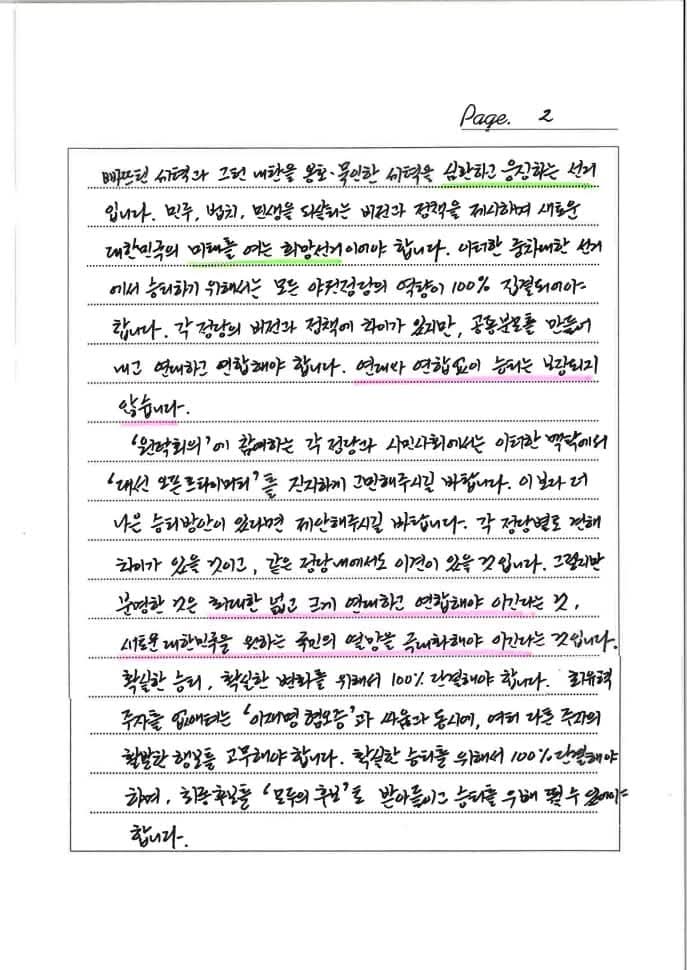 Page. 2
빠뜨린 세력과 그런 내란을 옹호·묵인한 세력을 심판하고 응징하는 선거
입니다. 민주, 법치, 민생을 되살리는 비전과 정책을 제시하며 새로운
대한민국의 미래를 여는 희망선거이어야 합니다. 이러한 중차대한 선거
에서 승리하기 위해서는 모든 야권정당의 역량이 100% 집결되어야
합니다. 각 정당의 비전과 정책에 차이가 있지만, 공동분모를 만들어
내고 연대하고 연합해야 합니다. 연대와 연합없이 승리는 보장되지
않습니다.
'원탁회의'에 참여하는 각 정당과 시민사회에서는 이러한 맥락에서
'대선 오픈프라이머리'를 진지하게 고민해주시길 바랍니다. 이 보다 더
나은 승리방안이 있다면 제안해주시길 바랍니다. 각 정당별로 견해
차이가 있을 것이고, 같은 정당내에서도 이견이 있을 것입니다. 그렇지만
분명한 것은 최대한 넓고 크게 연대하고 연합해야 이긴다는 것,
새로운 대한민국을 원하는 국민의 열망을 극대화해야 이긴다는 것입니다.
확실한 승리, 확실한 변화를 위해서 100% 단결해야 합니다. 최유력
주자를 없애려는 '이재명 혐오증'과 싸움과 동시에, 여러 다른 주자의
활발한 행보를 고무해야 합니다. 확실한 승리를 위해서 100% 단결해야
하며, 최종후보를 '모두의 후보'로 받아들이고 승리를 위해 뛸 수 있어야
합니다.